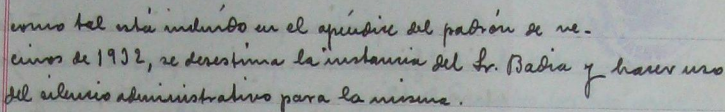 como tal está incluído en el apéndice del padrón de ve-
cinos de 1932, se desestima la instancia del Sr. Badia y hacer uso
del silencio administrativo para la misma.